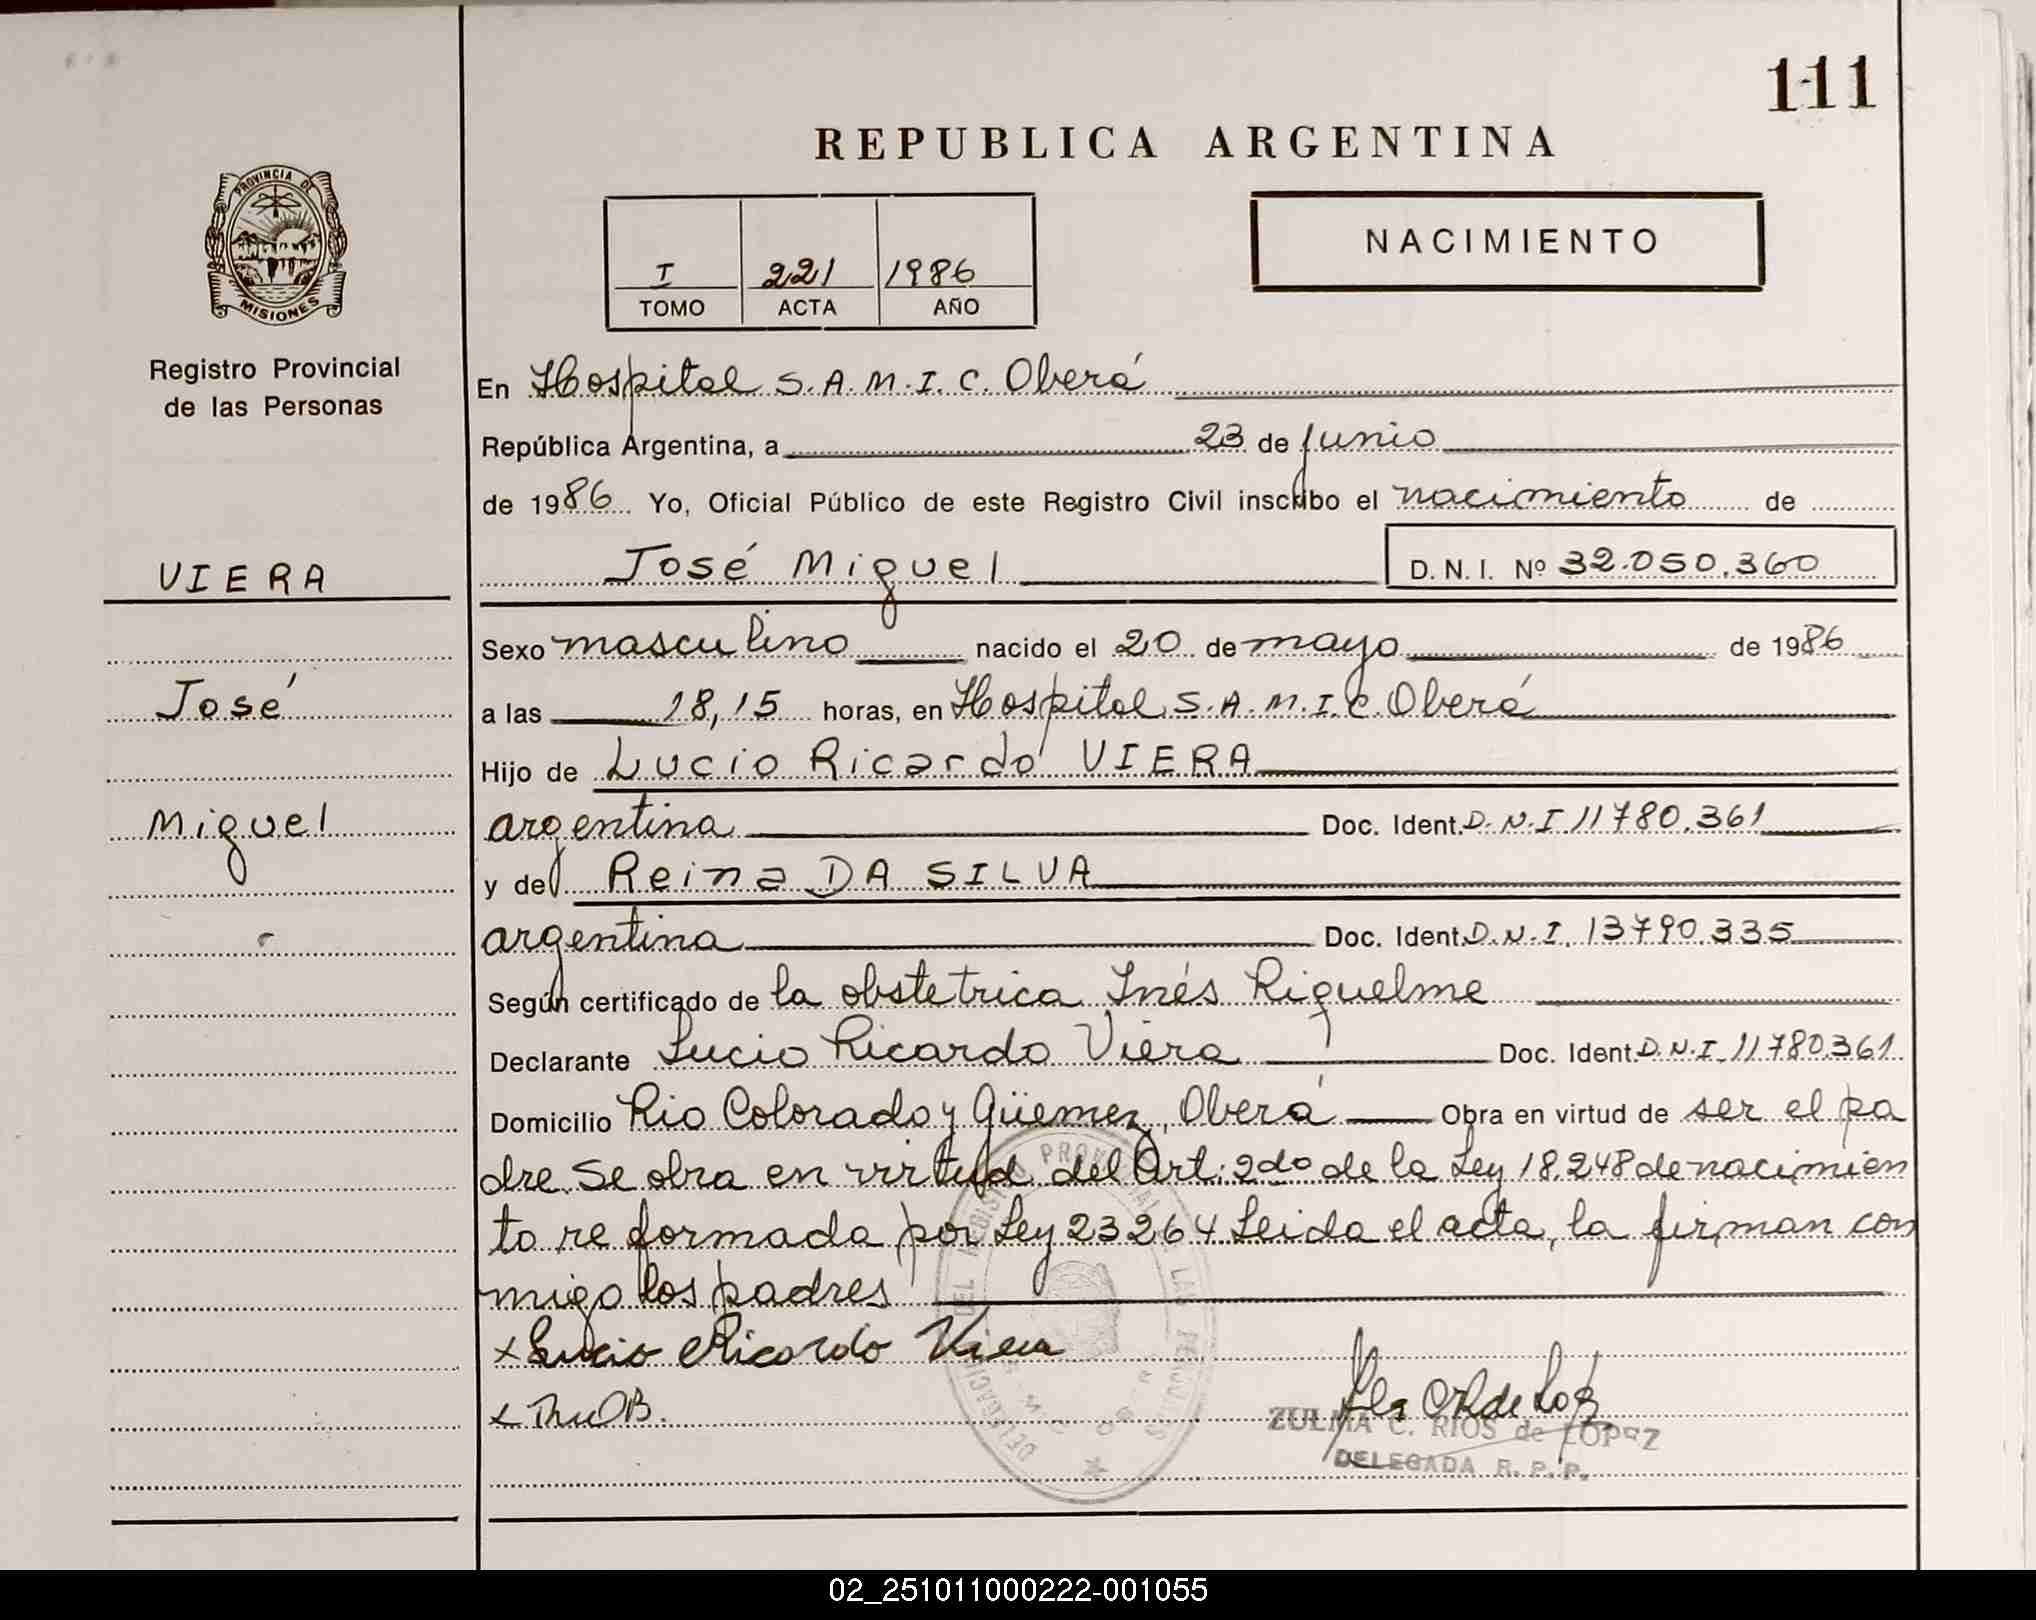 111
REPUBLICA ARGENTINA
PROVINCIA DE
MISIONES
NACIMIENTO
I 221 1986
TOMO ACTA AÑO
Registro Provincial
de las Personas
En Hospital S.A.M.I.C. Oberá
República Argentina, a 23 de junio
de 1986 Yo, Oficial Público de este Registro Civil inscribo el nacimiento de
VIERA
José Miguel D. N. I. Nº 32.050.360
Sexo masculino nacido el 20 de mayo de 1986
José
a las 18,15 horas, en Hospital S.A.M.I.C. Oberá
Hijo de Lucio Ricardo VIERA
Miguel
argentina Doc. Ident. D.N.I 11780.361
y de Reina DA SILVA
argentina Doc. Ident. D.N.I. 13790.335
Según certificado de la obstetrica Inés Riquelme
Declarante Lucio Ricardo Viera Doc. Ident. D.N.I. 11780361
Domicilio Rio Colorado y Güemez, Oberá Obra en virtud de ser el pa
dre. Se obra en virtud del Art. 2do de la Ley 18.248 de nacimien
to re formada por Ley 23264 Leida el acta, la firman con
migo los padres
x Lucio Ricardo Viera
x
ZULMA C. RIOS de LOPEZ
DELEGADA R. P. P.
02_251011000222-001055